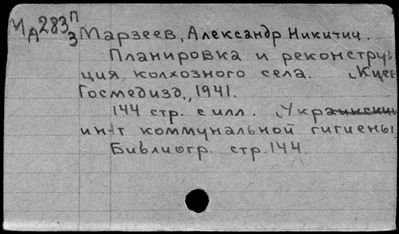 ИА283П/3
Марзеев, Александр Никитич.
Планировка и реконструк-
ция колхозного села. Киев
Госмедизд., 1941.
144 стр. с илл. Украинский
ин-т коммунальной гигиены
Библиогр. стр. 144.